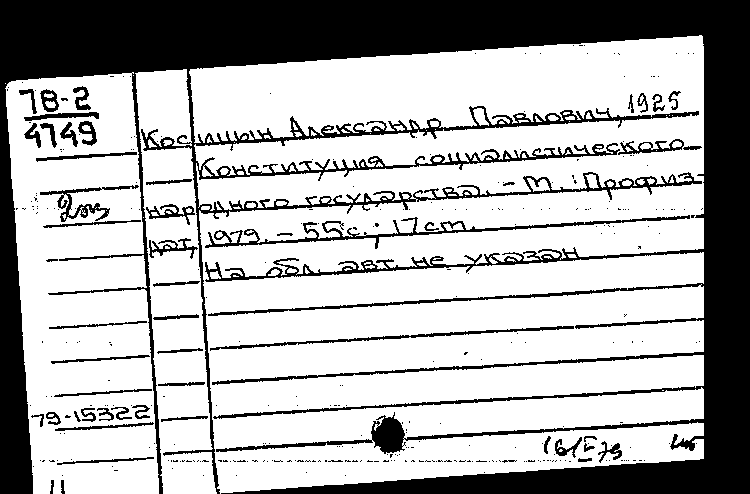 78-2
4749
Косицын, Александр Павлович, 1925
Конституция социалистического
2 экз
народного государства. - М. : Профиз-
дат, 1979. - 55с.; 17 cm.
На обл. авт. не указан
79-15322